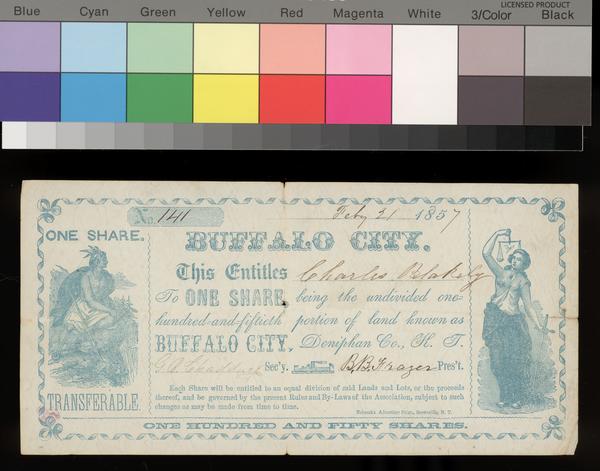 LICENSED PRODUCT
Blue Cyan Green Yellow Red Magenta White 3/Color Black
No. 141
Feby 21 1857
ONE SHARE.
BUFFALO CITY.
This Entitles Charles Blakely
To ONE SHARE being the undivided one-
hundred-and-fiftieth portion of land known as
BUFFALO CITY, Doniphan Co., K. T.
Sec'y. B.B. Frazer Pres't.
Each Share will be entitled to an equal division of said Lands and Lots, or the proceeds
thereof, and be governed by the present Rules and By-Laws of the Association, subject to such
changes as may be made from time to time.
Nebraska Advertiser Print, Brownville, N. T.
TRANSFERABLE
ONE HUNDRED AND FIFTY SHARES.